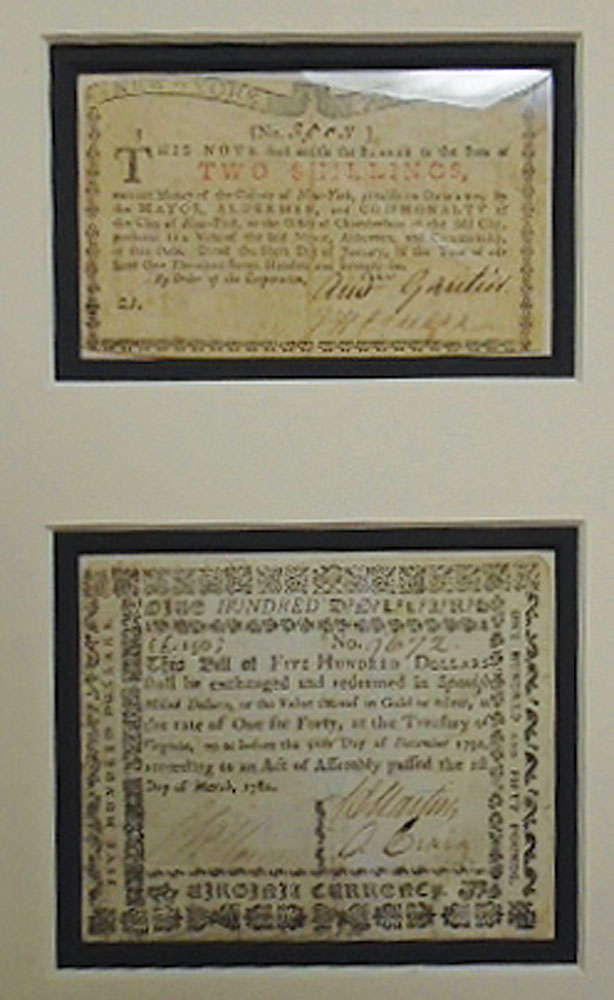 NEW-YORK
[No. ]
THIS NOTE shall entitle the BEARER to the Sum of
TWO SHILLINGS,
current Money of the Colony of New-York, payable on DEMAND, by
the MAYOR, ALDERMEN, and COMMONALTY of
the City of New-York, at the Office of Chamberlain of the said City,
pursuant to a Vote of the said Mayor, Aldermen, and Commonalty,
of this Date. Dated the Day of January, in the Year of our
Lord One Thousand Seven Hundred and
By Order of the Corporation,
And Gautier
2s.
FIVE HUNDRED DOLLARS.
HUNDRED
£.150
No. 7672
This Bill of FIVE HUNDRED DOLLARS
shall be exchanged and redeemed in Spanish
Milled Dollars, or the Value thereof in Gold or Silver, at
the rate of One for Forty, at the Treasury of
Virginia, on or before the Day of December
according to an Act of Assembly passed the
Day of March, 1781.
Martin
Craig
VIRGINIA CURRENCY.
ONE HUNDRED AND FIFTY POUNDS.